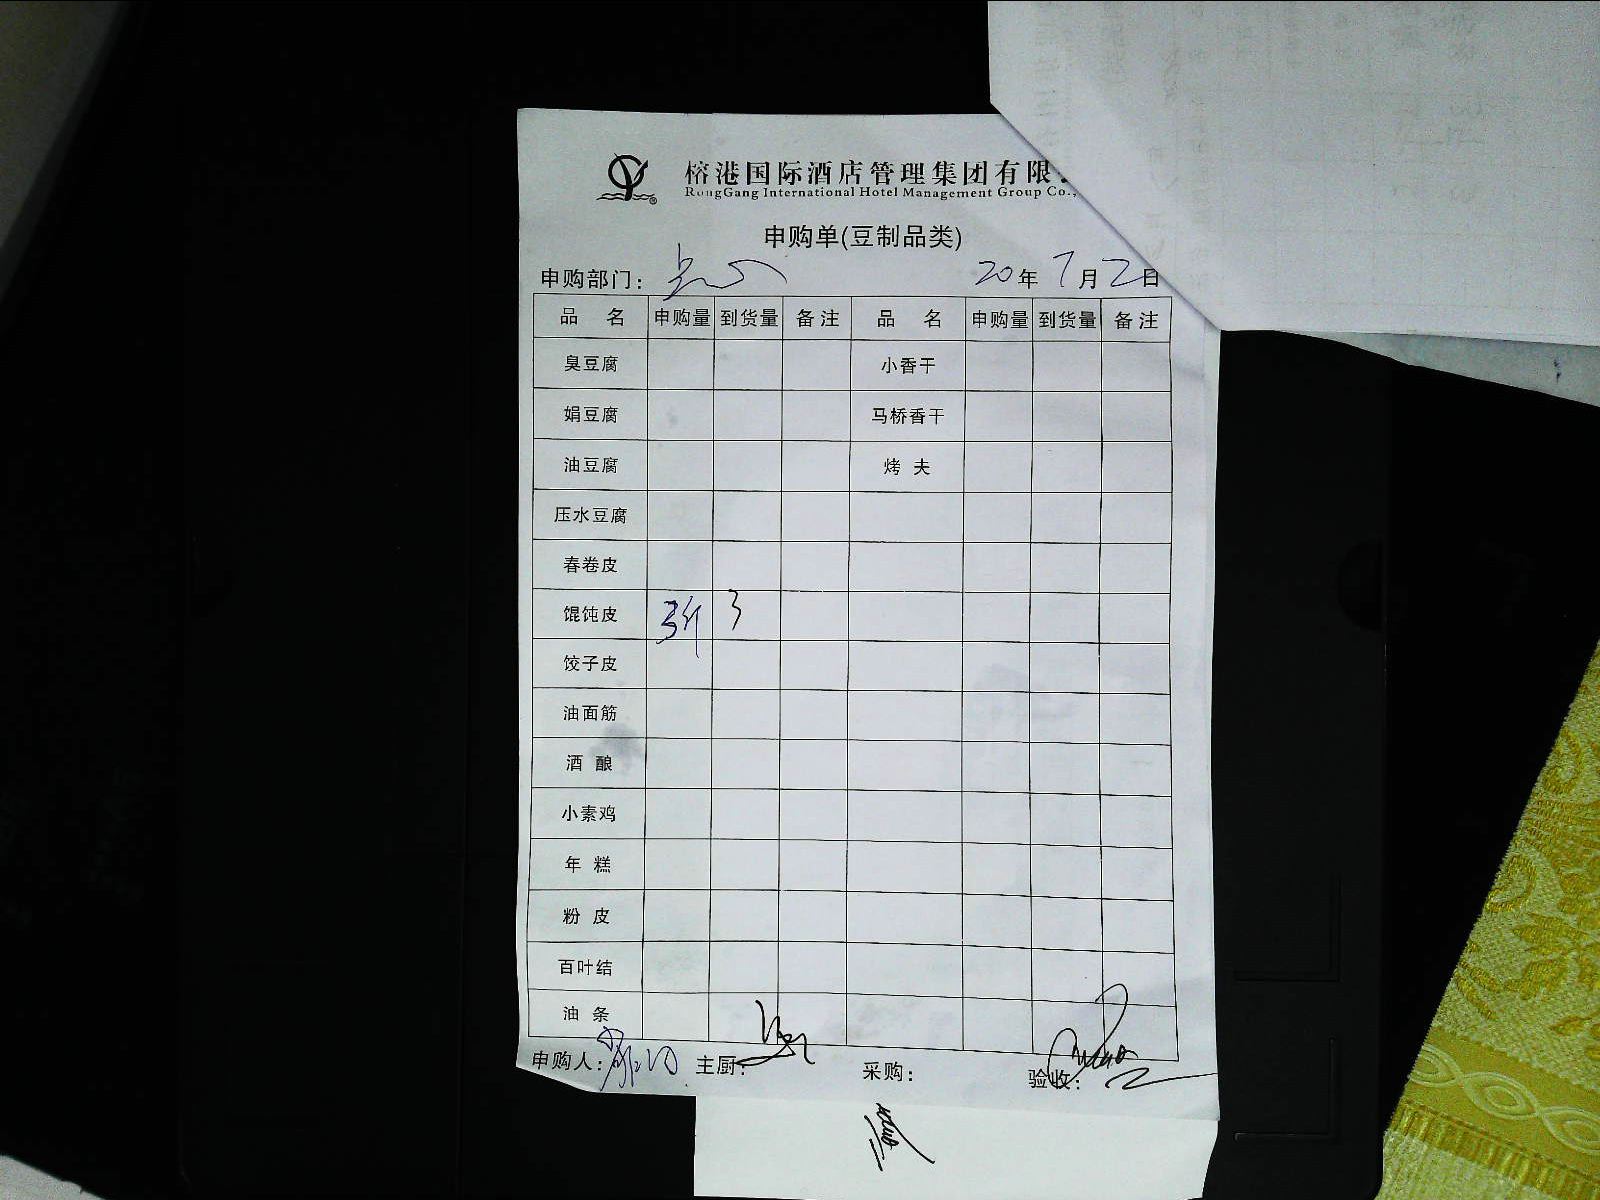 榕港国际酒店管理集团有限
RongGang International Hotel Management Group Co.,
申购单(豆制品类)
申购部门: 点心 20年7月2日
品名 申购量 到货量 备注 品名 申购量 到货量 备注
臭豆腐 小香干
娟豆腐 马桥香干
油豆腐 烤夫
压水豆腐
春卷皮
馄饨皮 3斤 3
饺子皮
油面筋
酒酿
小素鸡
年糕
粉皮
百叶结
油条
申购人: 主厨: 采购: 验收: